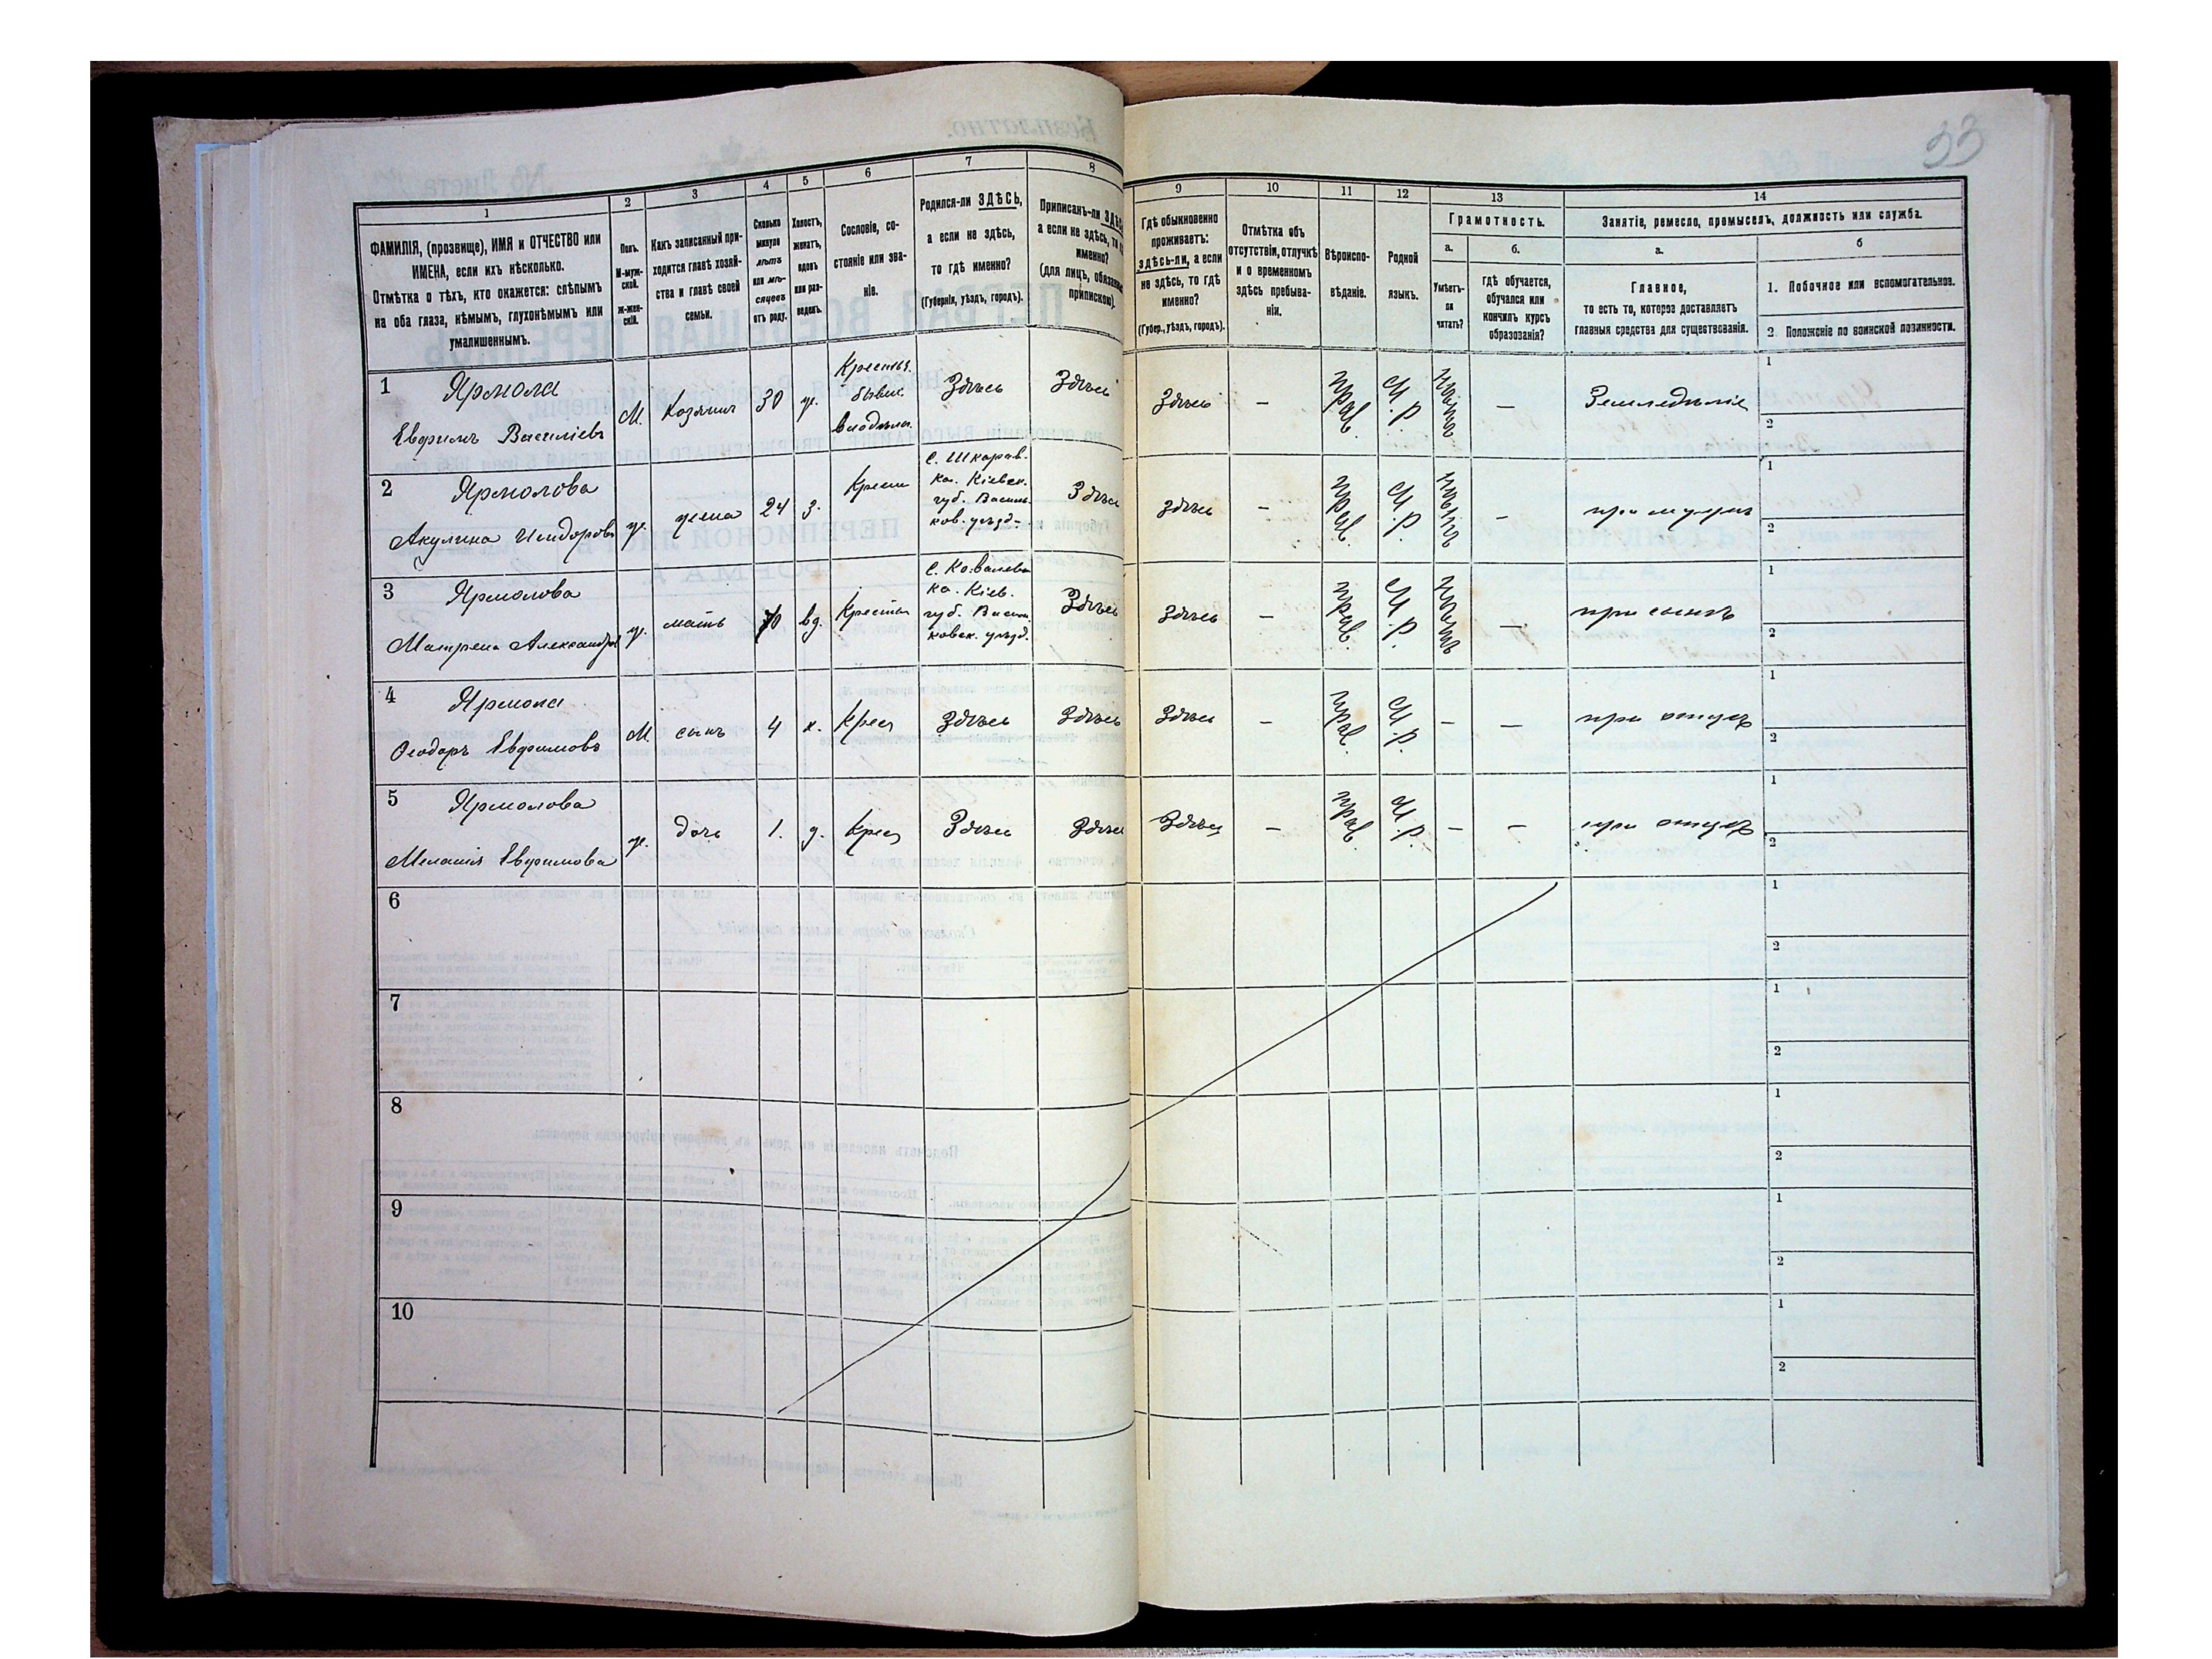 33
1
2
3
4
5
6
7
8
ФАМИЛІЯ, (прозвище), ИМЯ и ОТЧЕСТВО или
ИМЕНА, если ихъ нѣсколько.
Отмѣтка о тѣхъ, кто окажется: слѣпымъ
на оба глаза, нѣмымъ, глухонѣмымъ или
умалишеннымъ.
Полъ.
М-муж-
ской.
Ж-жен-
скій.
Какъ записанный при-
ходится главѣ хозяй-
ства и главѣ своей
семьи.
Сколько
минуло
лѣтъ
или мѣ-
сяцевъ
отъ роду.
Холостъ,
женатъ,
вдовъ
или раз-
веденъ.
Сословіе, со-
стояніе или зва-
ніе.
Родился-ли ЗДѢСЬ,
а если не здѣсь,
то гдѣ именно?
(Губернія, уѣздъ, городъ).
Приписанъ-ли
а если не здѣсь,
именно?
(для лицъ,
припискою).
9
10
11
12
13
14
Гдѣ обыкновенно
проживаетъ:
здѣсь-ли, а если
не здѣсь, то гдѣ
именно?
(Губер., уѣздъ, городъ).
Отмѣтка объ
отсутствіи, отлучкѣ
и о временномъ
здѣсь пребыва-
ніи.
Вѣроиспо-
вѣданіе.
Родной
языкъ.
Грамотность.
а.
Умѣетъ-
ли
читать?
б.
гдѣ обучается,
обучался или
кончилъ курсъ
образованія?
Занятіе, ремесло, промыселъ, должность или служба.
а.
Главное,
то есть то, которое доставляетъ
главныя средства для существованія.
б
1. Побочное или вспомогательное.
2 Положеніе по воинской повинности.
1 Ярмола
Евфимъ Василіевъ
М.
Хозяинъ
30
ж.
бывш.
Здѣсь
Здѣсь
Здѣсь
—
прав.
М.р.
—
Земледѣліе
1
2
2 Ярмолова
Акулина
ж.
жена
24
з.
Крест
с. Шкарав-
ка. Кіевск.
губ. Василь-
ков. уѣзд-
Здѣсь
Здѣсь
—
прав.
М.р.
—
при мужѣ
1
2
3 Ярмолова
Матрена Александр
ж.
мать
вд.
Крестья
с. Ковалев
ка. Кіев.
губ. Васил
ковск. уѣзд.
Здѣсь
Здѣсь
—
прав.
М.р.
—
при сынѣ
1
2
4 Ярмола
Ѳеодоръ Евфимовъ
М
сынъ
4
х.
Крес
Здѣсь
Здѣсь
Здѣсь
—
прав.
М.р.
—
—
при отцѣ
1
2
5 Ярмолова
Меланія Евфимова
ж.
дочь
1.
д.
Крес
Здѣсь
Здѣсь
Здѣсь
—
прав.
М.р.
—
—
при отцѣ
1
2
6
1
2
7
1
2
8
1
2
9
1
2
10
1
2